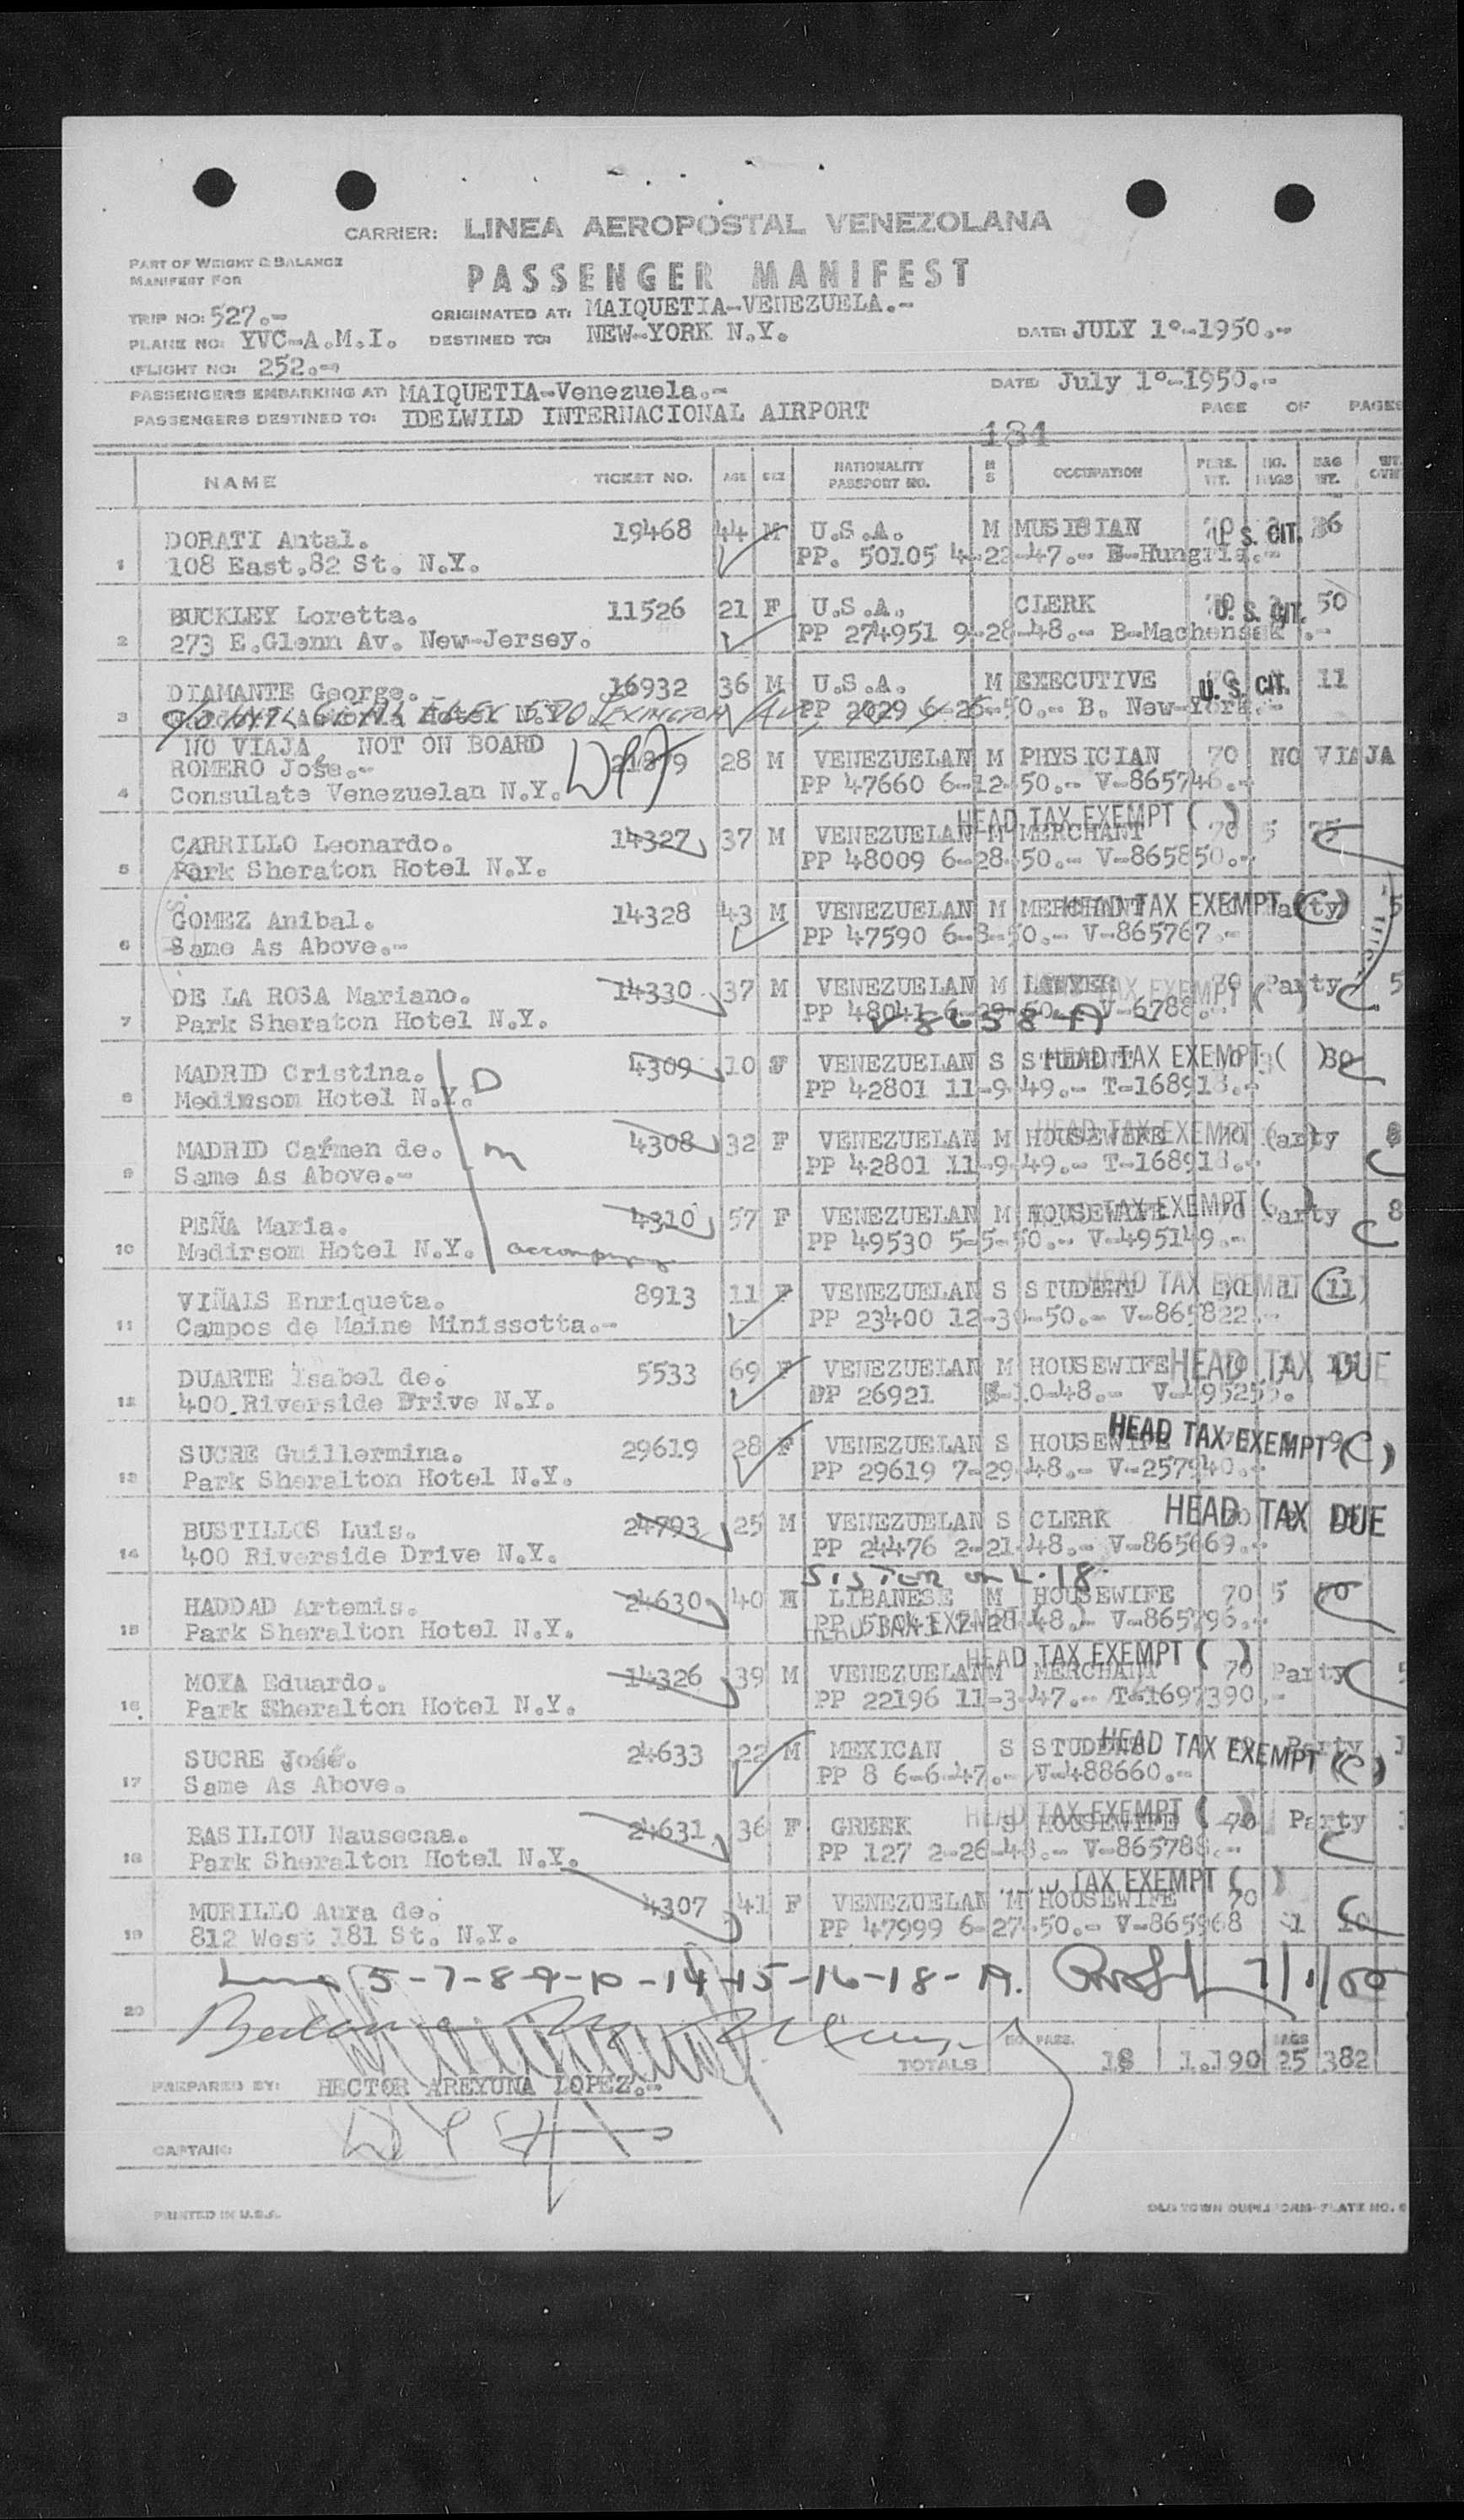 CARRIER: LINEA AEROPOSTAL VENEZOLANA
PART OF WEIGHT & BALANCE
MANIFEST FOR
PASSENGER MANIFEST
TRIP NO: 527.-
ORIGINATED AT: MAIQUETIA-VENEZUELA.-
PLANE NO: YVC-A.M.I.
DESTINED TO: NEW-YORK N.Y.
DATE: JULY 1º-1950.-
(FLIGHT NO: 252.-
PASSENGERS EMBARKING AT: MAIQUETIA-Venezuela.-
DATE: July 1º-1950.-
PASSENGERS DESTINED TO: IDELWILD INTERNACIONAL AIRPORT
PAGE OF PAGES
184
NAME TICKET NO. AGE SEX NATIONALITY PASSPORT NO. M S OCCUPATION PERS. WT. NO. BAGS BAG WT. WT. OVR
DORATI Antal. 19468 44 M U.S.A. M MUSISIAN 70 U.S. CIT. 36
1 108 East.82 St. N.Y. PP. 50105 4-22-47.- B-Hungria.-
BUCKLEY Loretta. 11526 21 F U.S.A. CLERK 70 U. S. CIT. 50
2 273 E.Glenn Av. New-Jersey. PP 274951 9-28-48.- B-Machensak .-
DIAMANTE George. 16932 36 M U.S.A. M EXECUTIVE 70 U. S. CIT. 11
3 Hotel N.Y. LEXINGTON AV. PP 2029 6-26-50.- B. New-York.-
NO VIAJA NOT ON BOARD
ROMERO José.- 21879 28 M VENEZUELAN M PHYSICIAN 70 NO VIAJA
4 Consulate Venezuelan N.Y. PP 47660 6-12-50.- V-865746.-
HEAD TAX EXEMPT ( )
CARRILLO Leonardo. 14327 37 M VENEZUELAN M MERCHANT 70 5 75
5 Park Sheraton Hotel N.Y. PP 48009 6-28-50.- V-865850.-
GOMEZ Anibal. 14328 43 M VENEZUELAN M MERCHANT HEAD TAX EXEMPT (C) Party 5
6 Same As Above.- PP 47590 6-8-50.- V-865767.-
DE LA ROSA Mariano. 14330 37 M VENEZUELAN M LAWYER TAX EXEMPT ( ) 70 Party 5
7 Park Sheraton Hotel N.Y. PP 48041 6-29-50.- V-6788.-
MADRID Cristina. D 4309 10 F VENEZUELAN S STUDENT HEAD TAX EXEMPT ( ) 3 80
8 Medirsom Hotel N.Y. PP 42801 11-9-49.- T-168918.-
MADRID Carmen de. m 4308 32 F VENEZUELAN M HOUSEWIFE HEAD TAX EXEMPT ( ) Party 8
9 Same As Above.- PP 42801 11-9-49.- T-168918.-
PEÑA Maria. 4310 57 F VENEZUELAN M HOUSEWIFE TAX EXEMPT ( ) 70 Party 8
10 Medirsom Hotel N.Y. PP 49530 5-5-50.- V-495149.-
VIÑAIS Enriqueta. 8913 11 F VENEZUELAN S STUDENT HEAD TAX EXEMPT (11)
11 Campos de Maine Minissotta.- PP 23400 12-30-50.- V-865822.-
DUARTE Isabel de. 5533 69 F VENEZUELAN M HOUSEWIFE HEAD TAX DUE
12 400.Riverside Drive N.Y. PP 26921 -10-48.- V-495255.
SUCRE Guillermina. 29619 28 F VENEZUELAN S HOUSEWIFE HEAD TAX EXEMPT (C) 9
13 Park Sheralton Hotel N.Y. PP 29619 7-29-48.- V-257940.-
BUSTILLOS Luis. 24793 25 M VENEZUELAN S CLERK HEAD TAX DUE
14 400 Riverside Drive N.Y. PP 24476 2-21-48.- V-865669.-
SISTER on L. 18.
HADDAD Artemis. 24630 40 LIBANESE M HOUSEWIFE 70 5 70
15 Park Sheralton Hotel N.Y. 7-28-48.- V-865796.-
HEAD TAX EXEMPT ( )
MOYA Eduardo. 14326 39 M VENEZUELAN M MERCHANT 70 Party 5
16. Park Sheralton Hotel N.Y. PP 22196 11-3-47.- T-1697390.-
SUCRE José. 24633 22 M MEXICAN S STUDENT HEAD TAX EXEMPT (C) Party
17 Same As Above. PP 8 6-6-47.- V-488660.-
HEAD TAX EXEMPT ( )
BASILIOU Nausecaa. 24631 36 F GREEK S HOUSEWIFE 70 Party
18 Park Sheralton Hotel N.Y. PP 127 2-26-48.- V-865788.-
TAX EXEMPT ( )
MURILLO Aura de. 4307 41 F VENEZUELAN M HOUSEWIFE 70
19 812 West 181 St. N.Y. PP 47999 6-27-50.- V-865968 1 10
5-7-8-9-10-14-15-16-18-19. 7/1/50
20
NO. PASS. BAGS
TOTALS 18 1.190 25 382
PREPARED BY: HECTOR AREYUNA LOPEZ.-
CAPTAIN:
PRINTED IN U.S.A.
OLD TOWN DUPLIFORM-PLATE NO.